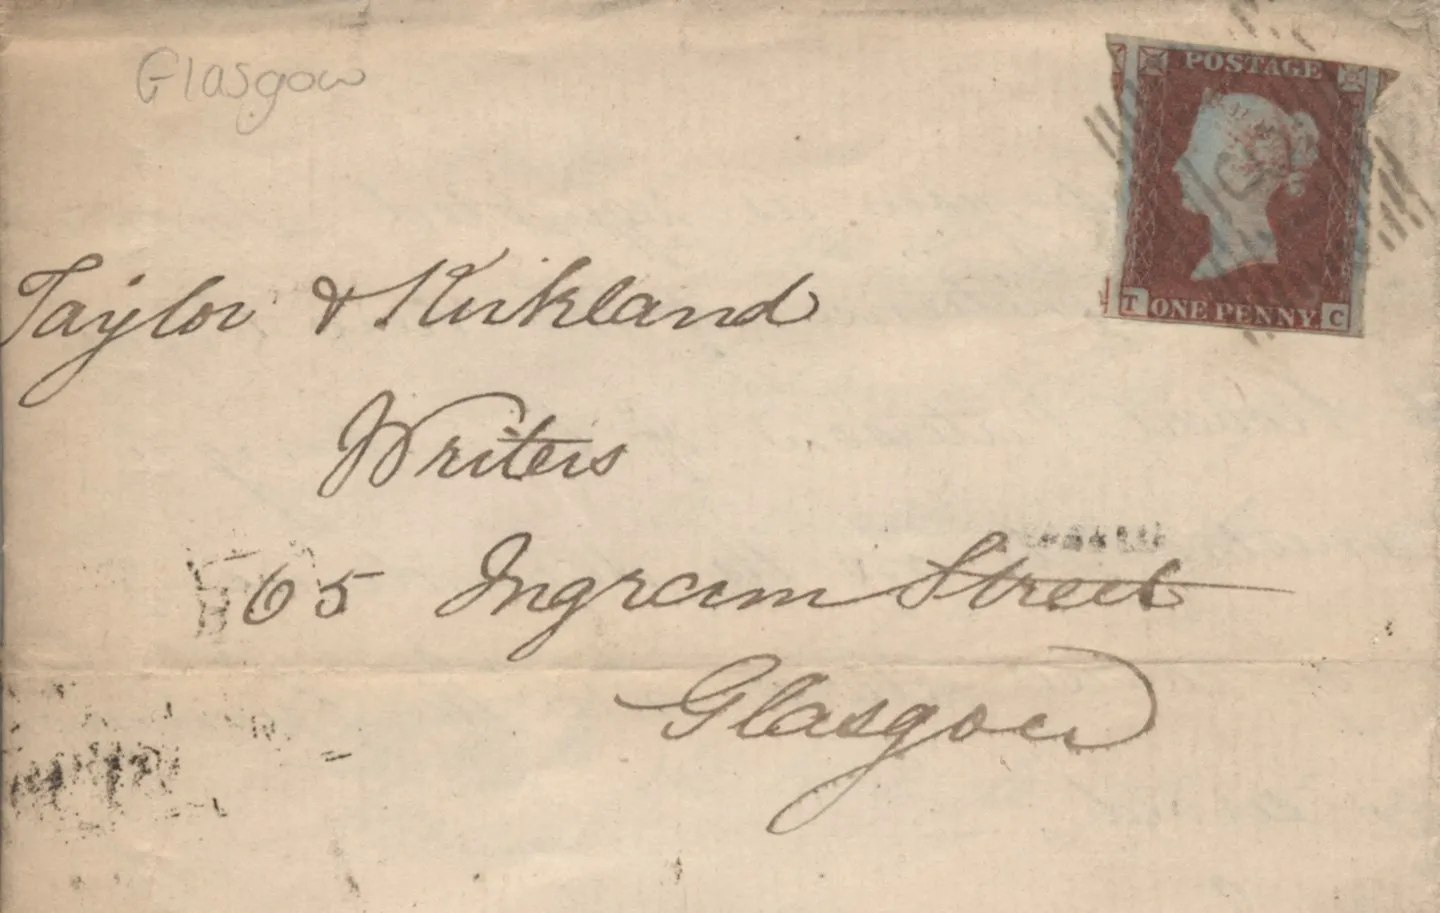 Glasgow
POSTAGE
T ONE PENNY. C
Taylor & Kirkland
Writers
65 Ingram Street
Glasgow